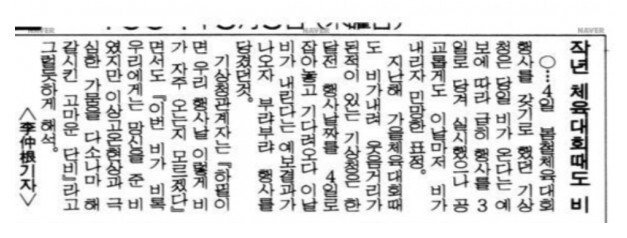 NAVER NAVER NAVER
작년 체육대회때도 비
○…4일 봄철체육대회
행사를 갖기로 했던 기상
청은 당일 비가 온다는 예
보에 따라 급히 행사를 3
일로 당겨 실시했으나 공
교롭게도 이날마저 비가
내리자 민망한 표정。
지난해 가을체육대회때
도 비가내려 웃음거리가
된적이 있는 기상청은 한
달전 행사날짜를 4일로
잡아놓고 기다려오다 이날
비가 내린다는 예보결과가
나오자 부랴부랴 행사를
당겼던것。
기상청관계자는 『하필이
면 우리 행사날 이렇게 비
가 자주 오는지 모르겠다』
면서도 『이번 비가 비록
우리에게는 망신을 준 비
였지만 이상고온현상과 극
심한 가뭄을 다소나마 해
갈시킨 고마운 단비』라고
그럴듯하게 해석。
〈李仲根기자〉